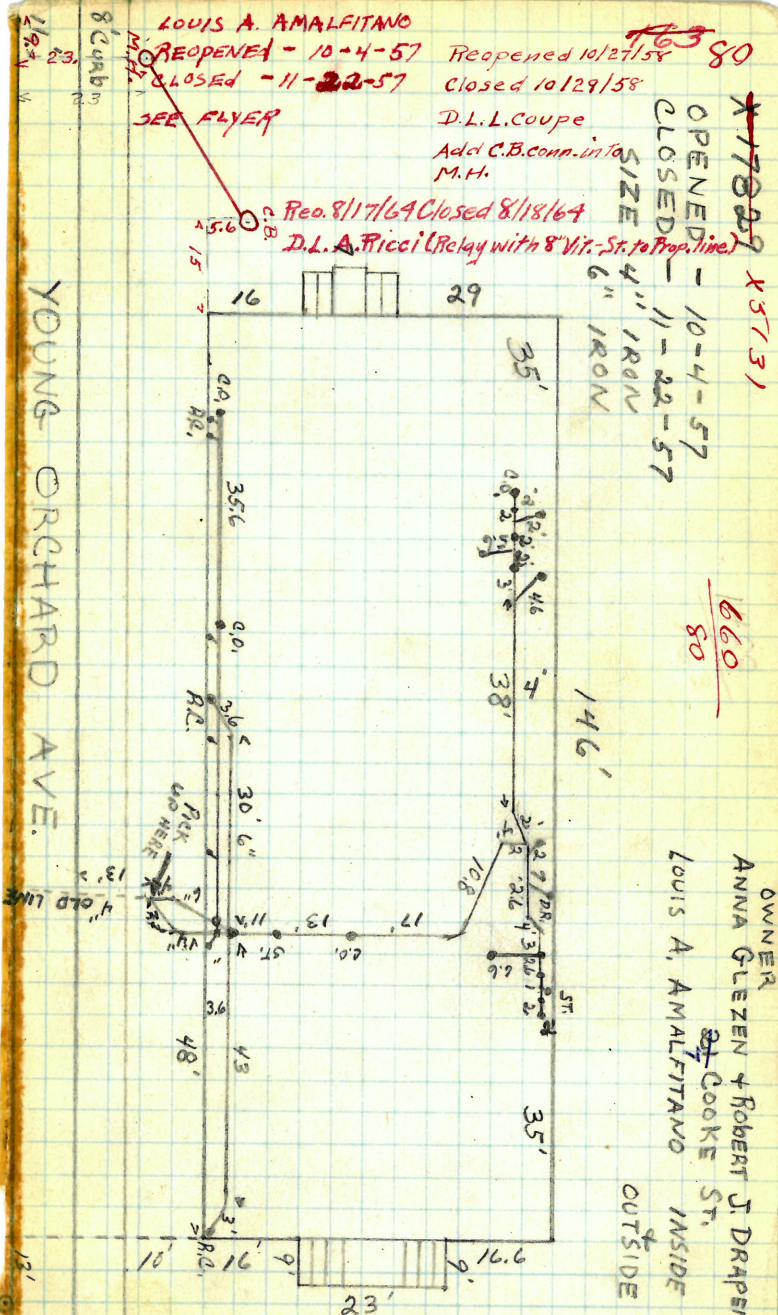 LOUIS A. AMALFITANO
REOPENED - 10-4-57
CLOSED - 11-22-57
SEE FLYER
Reopened 10/27/58
Closed 10/29/58
D.L.L. Coupe
Add C.B. conn. into
M.H.
Reo. 8/17/64 Closed 8/18/64
D.L. A. Ricci (Relay with 8" Vit.-St. to Prop. line)
163 80
X 17829 X5131
OPENED - 10-4-57
CLOSED - 11-22-57
SIZE 4" IRON
6" IRON
660
80
OWNER
ANNA GLEZEN + ROBERT J. DRAPE
21 COOKE ST.
LOUIS A. AMALFITANO INSIDE
+
OUTSIDE
YOUNG ORCHARD AVE.
8' Curb
23.
23
M.H.
C.B.
5.6
15
16
29
35'
146'
C.O.
R.C.
35.6
C.O.
R.C.
3.6
30' 6"
PICK
UP HERE
13'
4" OLD LINE
6"
11"
ST.
13'
C.O.
17'
10.8
38'
4"
4.6
3'
2'
2'
2.6
DR.
ST.
6.6
3.6
48'
43
3'
R.C.
35'
10'
16'
9'
23'
9'
16.6
13'